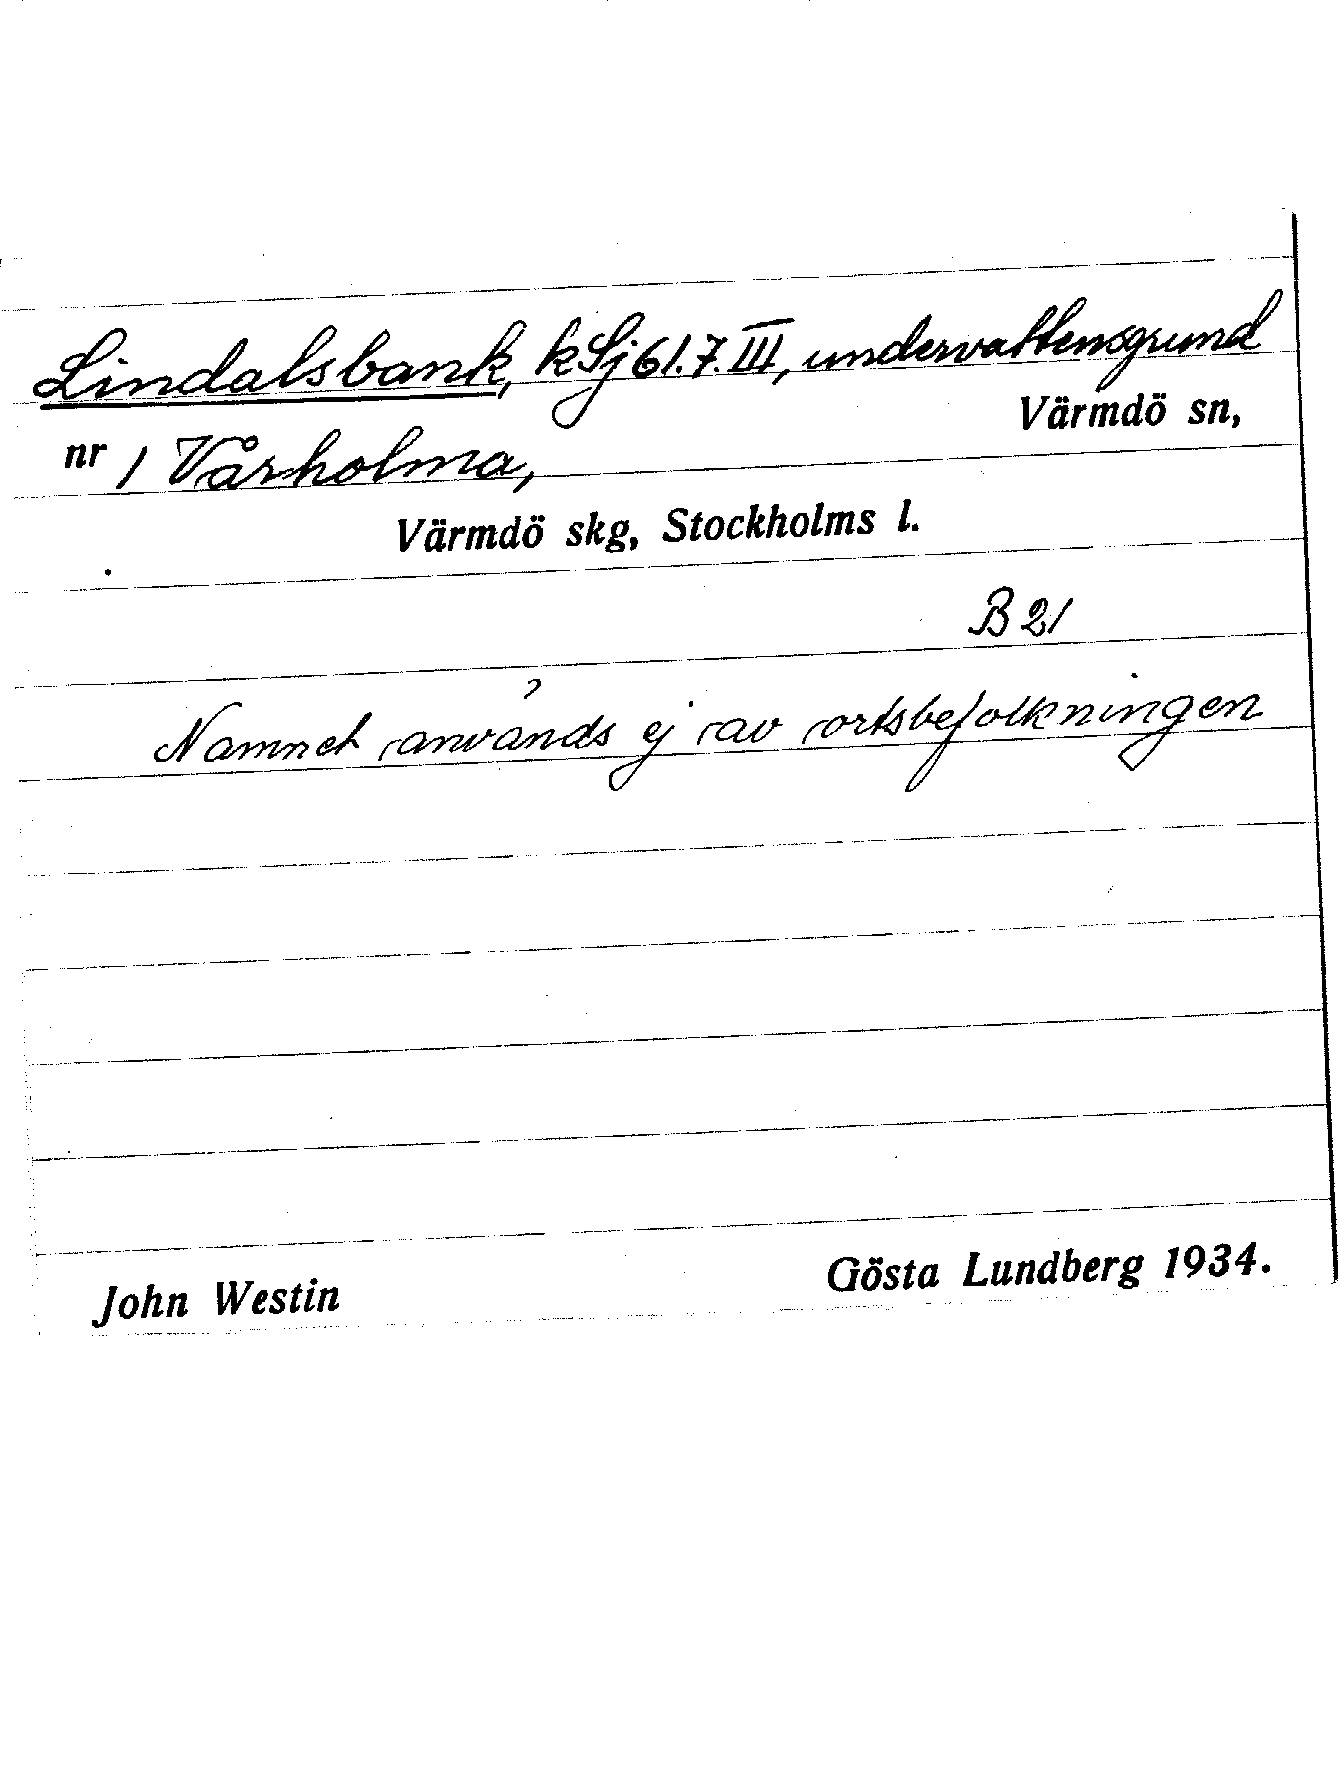 Lindalsbank, kSj 61.7.III, undervattensgrund
Värmdö sn,
nr 1 Vårholma,
Värmdö skg, Stockholms l.
B 21
Namnet används ej av ortsbefolkningen
John Westin Gösta Lundberg 1934.